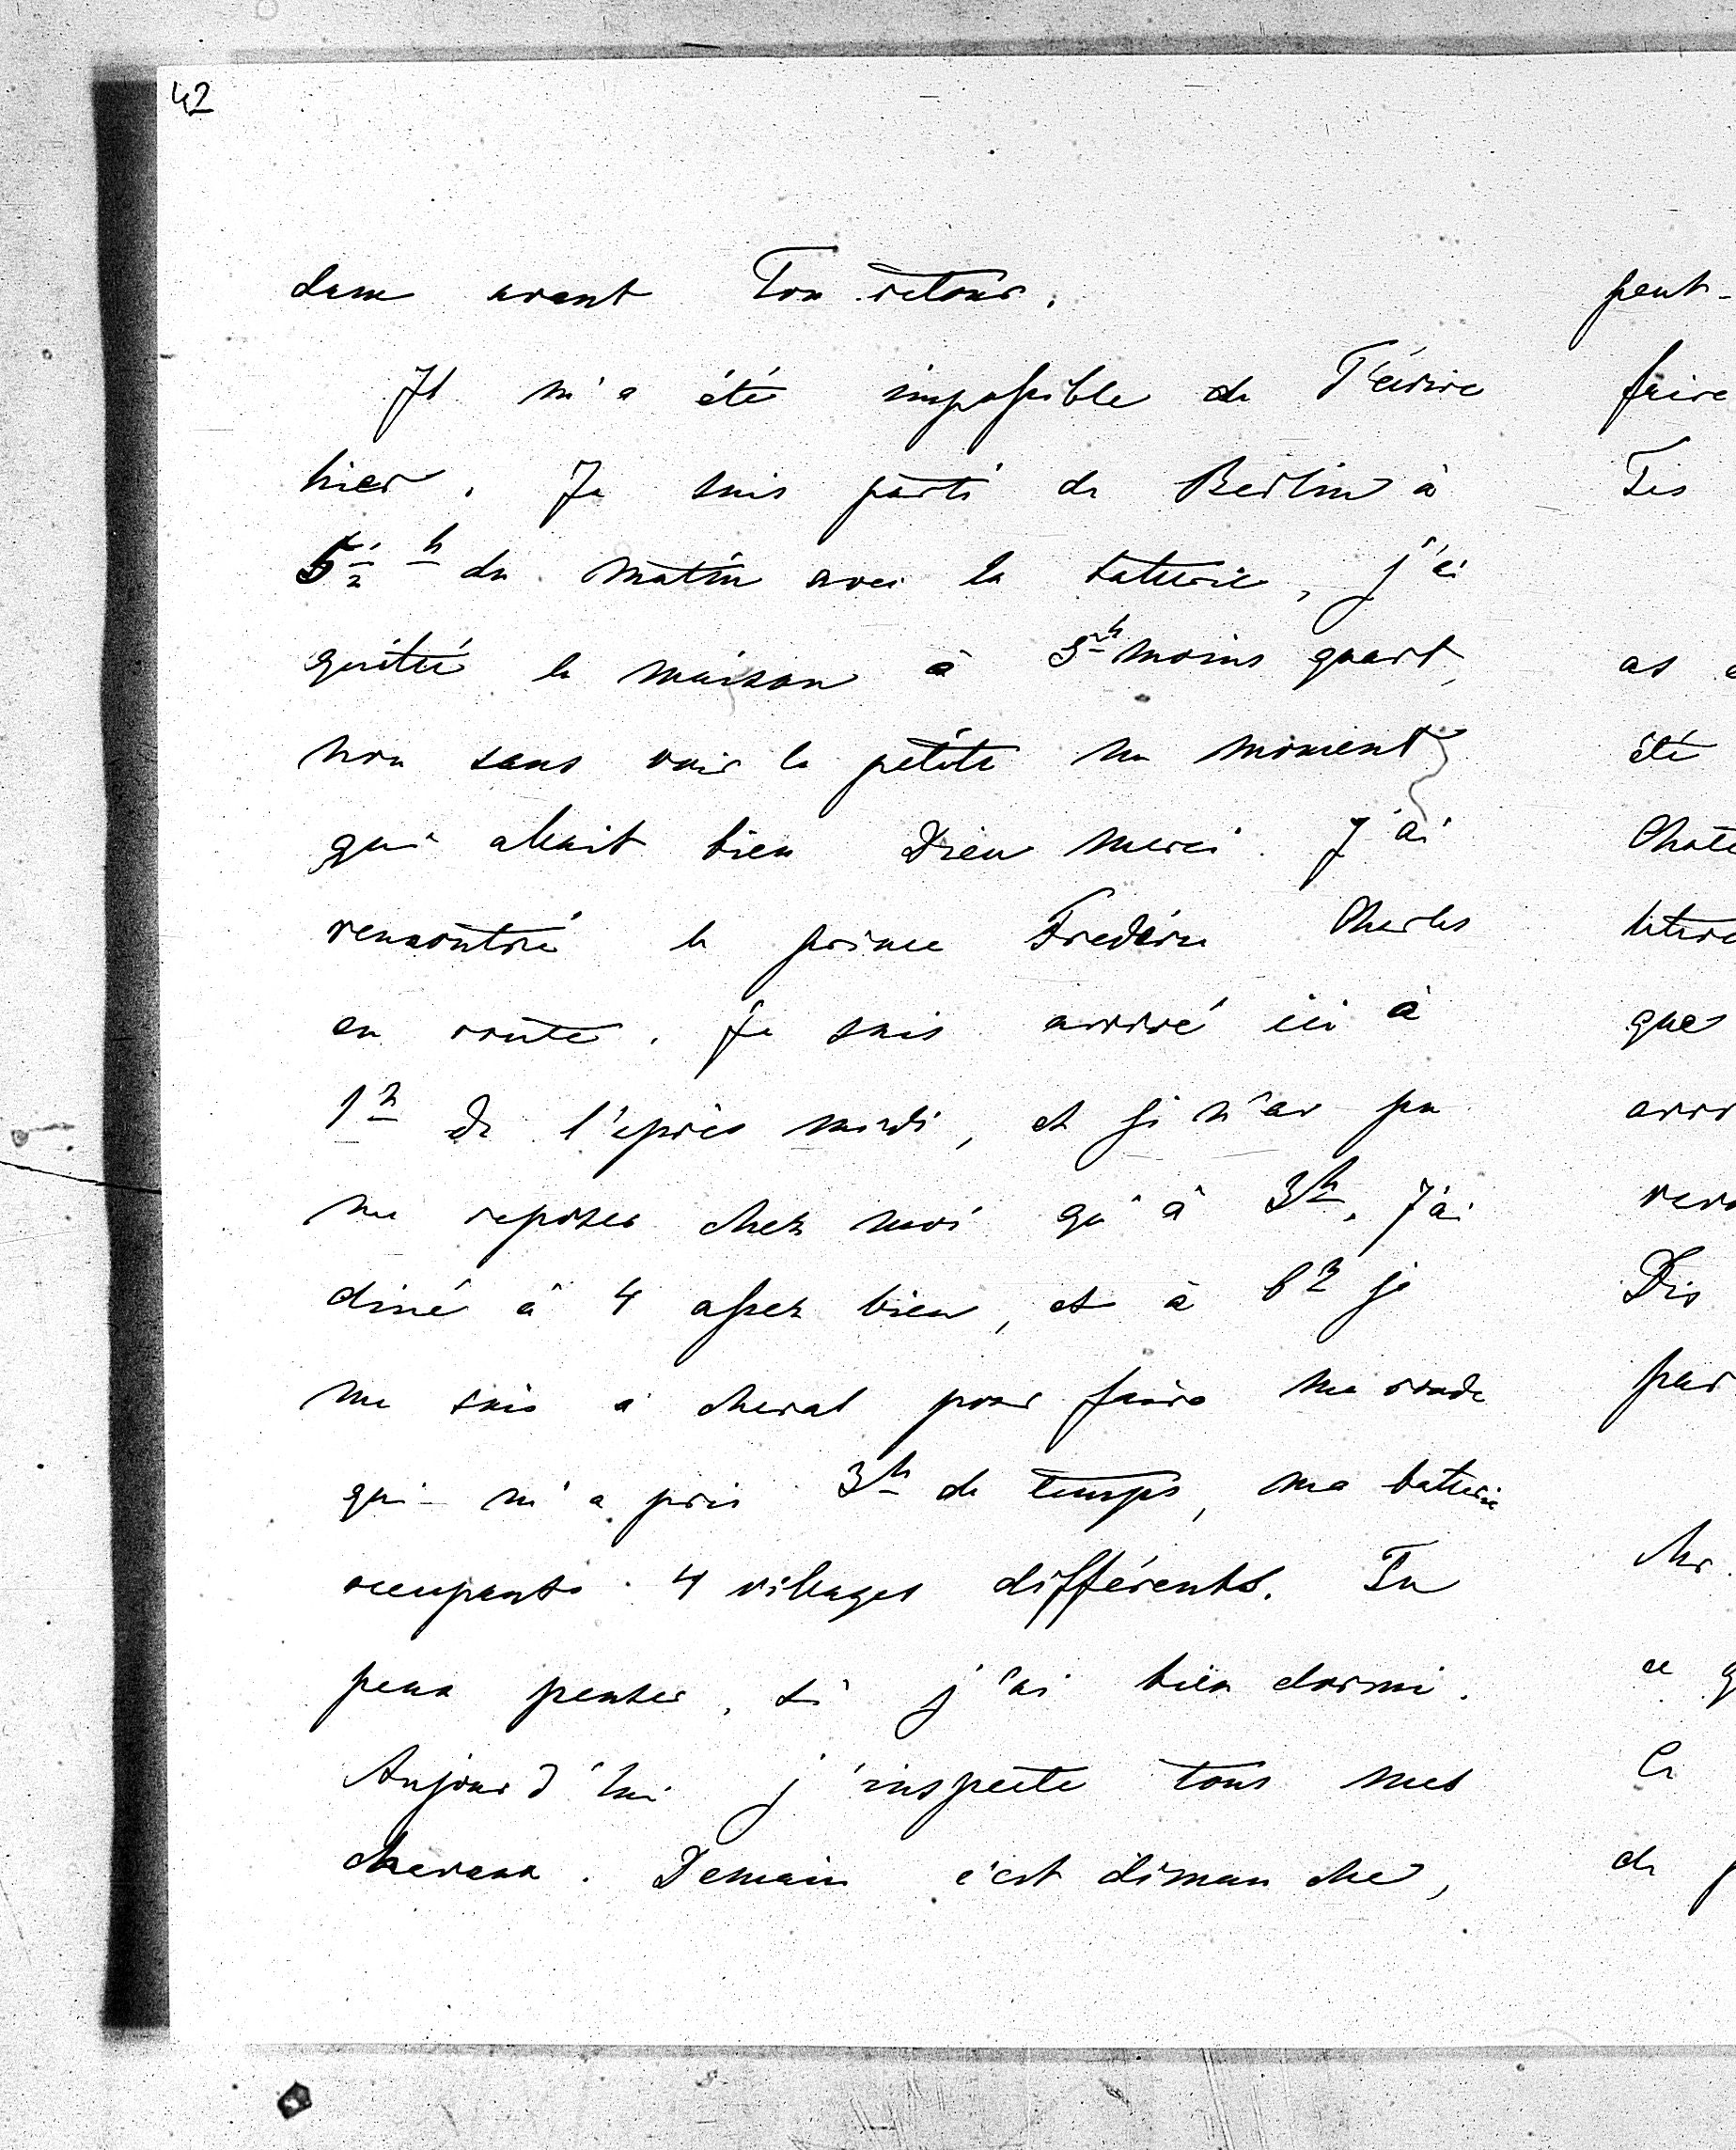 42
dame avant Ton retour.
Il m'a été impossible de T'écrire
hier. Je suis parti de Berlin à
5 1/2 h du matin avec la batterie, j'ai
quitté la maison à 5h moins quart,
non sans voir la petite un moment
qui allait bien Dieu merci. J'ai
rencontré le prince Frédéric Charles
en route. Je suis arrivé ici à
1h de l'après midi, et je n'ai pu
me reposer chez moi qu'à 3h. J'ai
diné à 4 assez bien, et à 6h je
me suis à cheval pour faire ma ronde
qui m'a pris 3h de temps, ma batterie
occupants 4 villages différents. Tu
peux penser, si j'ai bien dormi.
Aujourd'hui j'inspecte tous mes
chevaux. Demain c'est dimanche,
peut-
faire
Tes
as
été
que
arr
Dis
par
ce
de